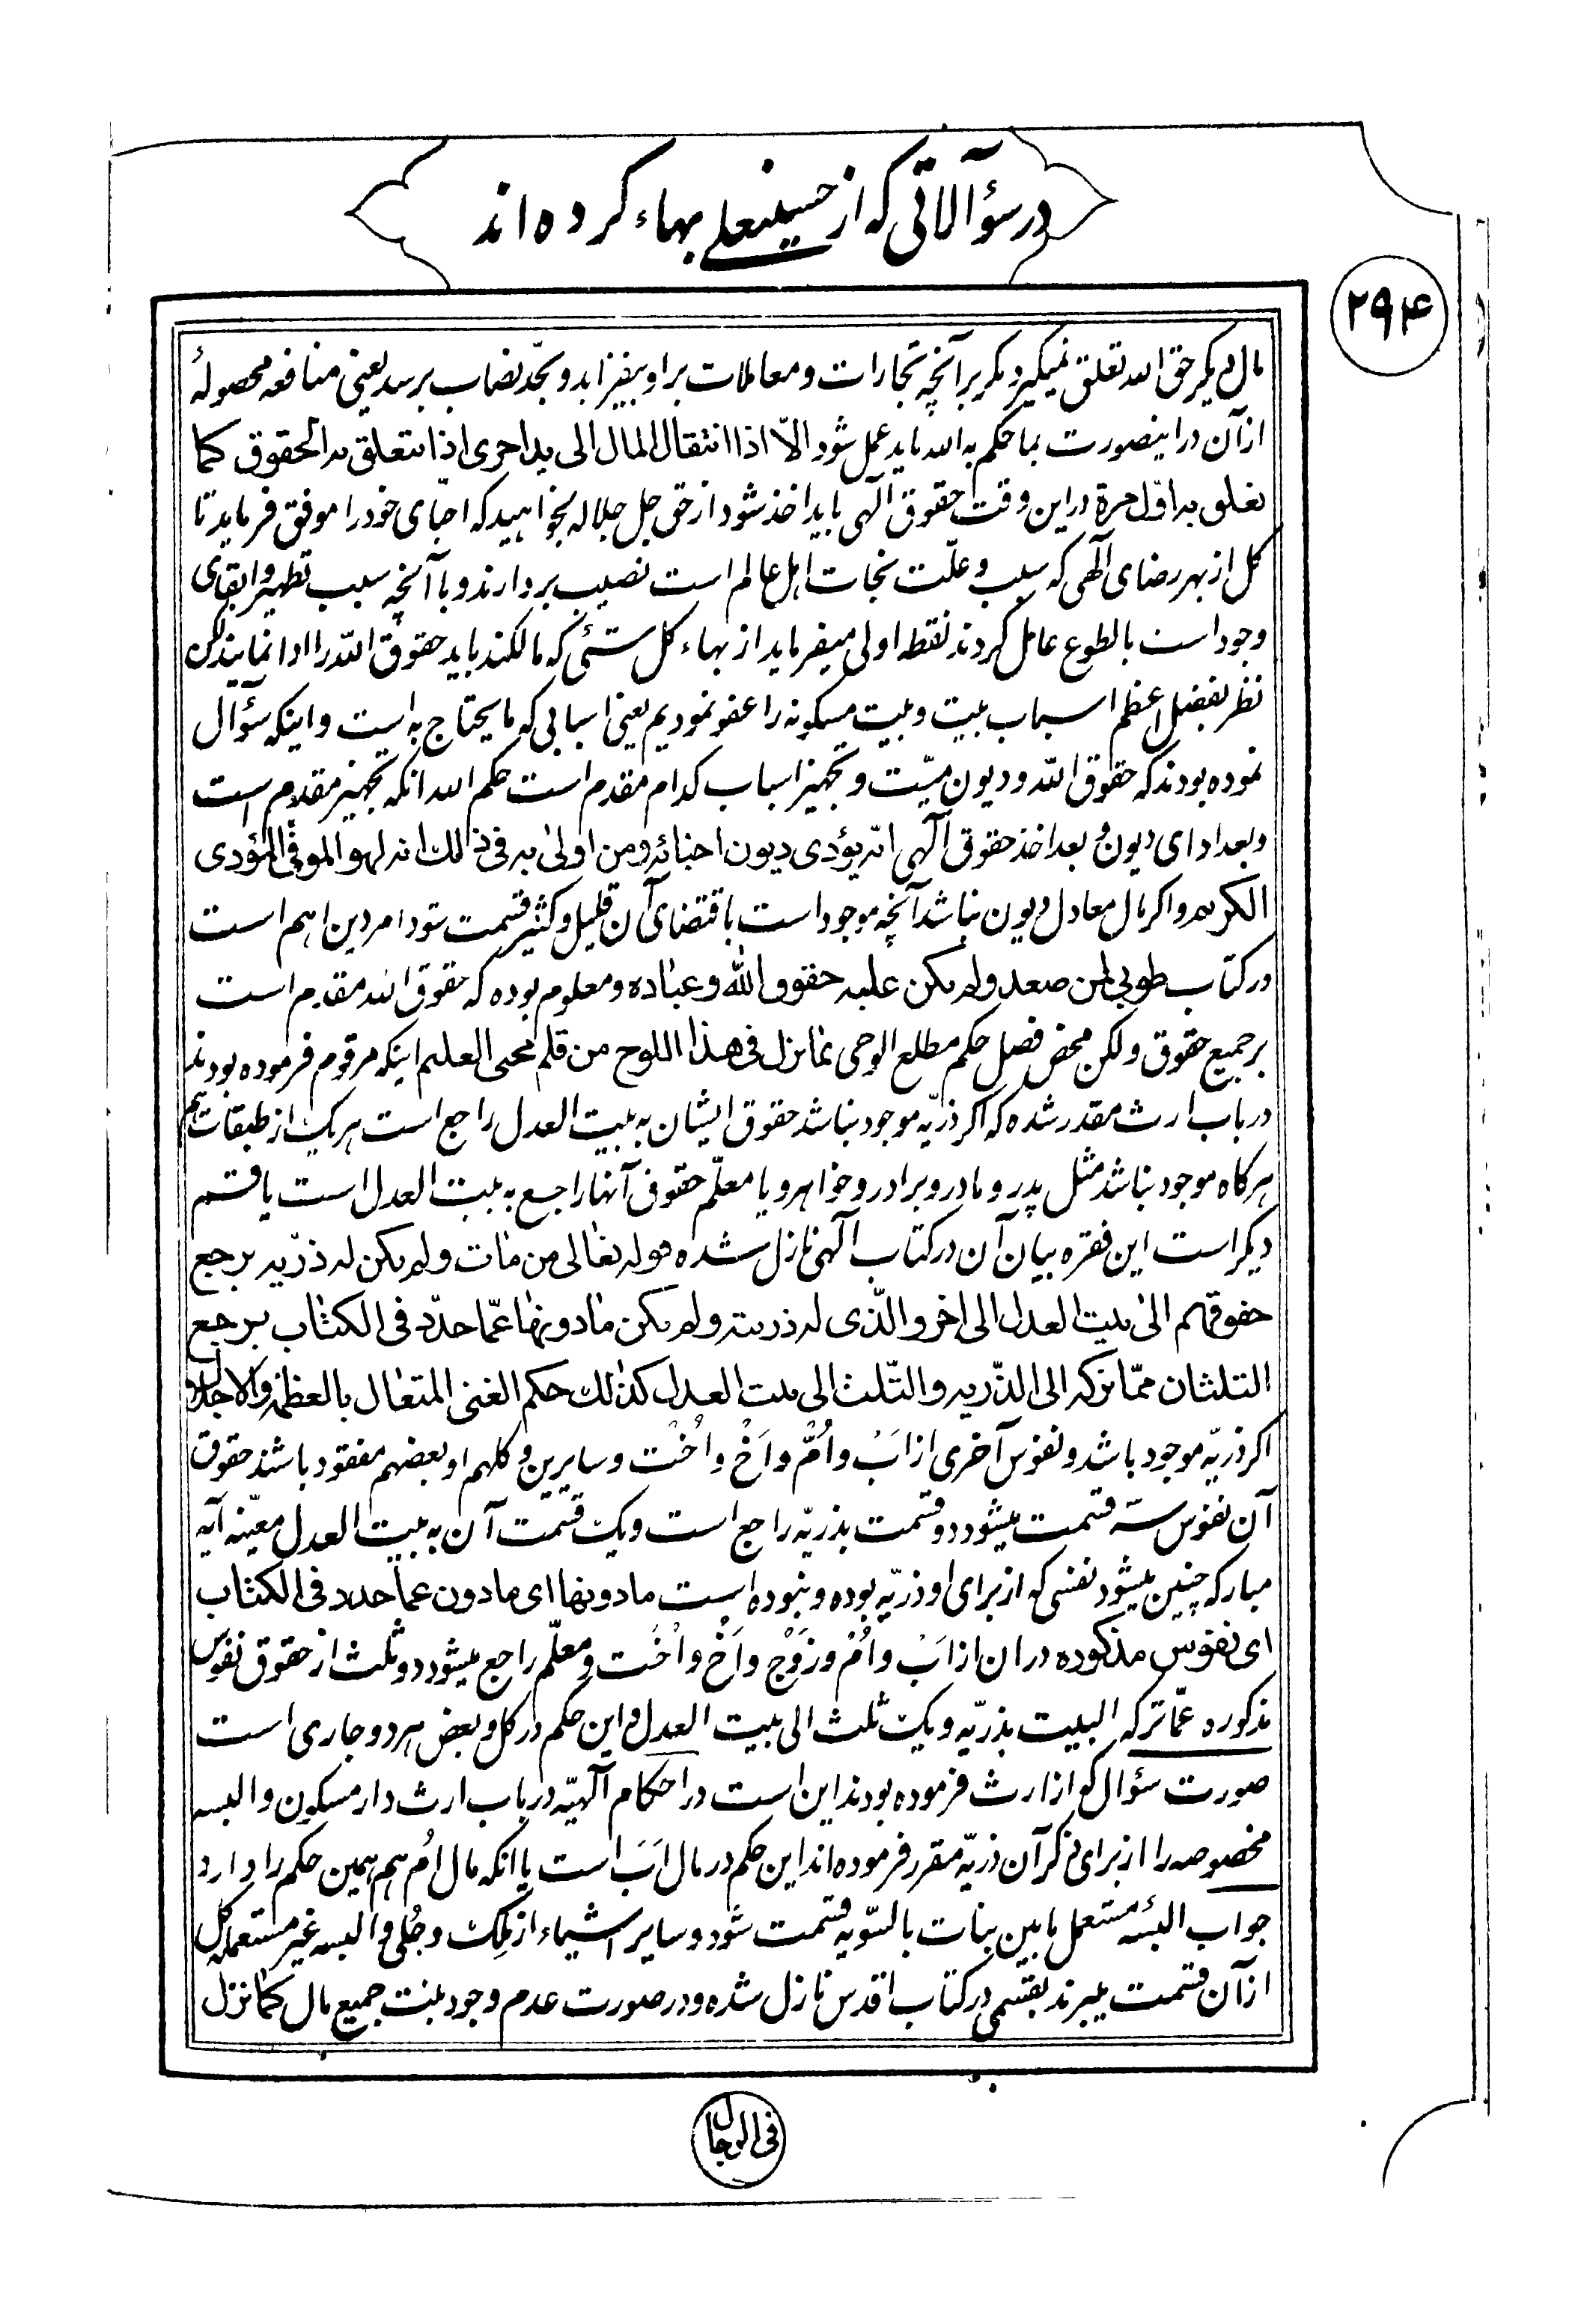 در سؤآلاتی که از حسینعلی بهاء کرده‌اند
۲۹۴
مال دیگر حق الله تعلق نمیگیرد مگر بر آنچه تجارات و معاملات بر او بیفزاید و بحد نصاب برسد یعنی منافعه محصولهٔ
از آن در اینصورت بما حکم به الله باید عمل شود الّا اذا انتقال المال الی ید اخری اذا یتعلق به الحقوق کما
تعلق به اوّل مرة در این وقت حقوق الهی باید اخذ شود از حق جل جلاله بخواهید که احبّای خود را موفق فرماید تا
کل از بهر رضای آلهی که سبب و علّت نجات اهل عالم است نصیب بردارند و با آنچه سبب تطهیر و ابقای
وجود است بالطوع عامل گردند نقطه اولی میفرماید از بهاء کل شئی که مالکند باید حقوق الله را ادا نمایند
نظر بفضل اعظم اسباب بیت و بیت مسکونه را عفو نمودیم یعنی اسبابی که ما یحتاج به است و اینکه سؤآل
نموده بودند که حقوق الله و دیون میّت و تجهیز اسباب کدام مقدم است حکم الله انکه تجهیز مقدم است
و بعد ادای دیون و بعد اخذ حقوق آلهی انّه یؤدی دیون احبائه و من اولی به فی ذالك انه لهو الموفی المؤدی
الکریم و اکر مال معادل دیون نباشد آنچه موجود است باقتضای آن قلیل و کثیر قسمت شود امر دین اهم است
در کتاب طوبی لمن صعد و لم یکن علیه حقوق الله و عباده و معلوم بوده که حقوق الله مقدم است
بر جمیع حقوق ولکن محض فضل حکم مطلع الوحی بما نزل فی هذا اللوح من قلم محیی العلیم اینکه مرقوم فرموده بودند
در باب ارث مقدر شده که اکر ذریّه موجود نباشد حقوق ایشان به بیت العدل راجع است هر یک از طبقات هم
هرگاه موجود نباشد مثل پدر و مادر و برادر و خواهر و یا معلّم حقوق آنها راجع به بیت العدل است یا قسم
دیگر است این فقره بیان آن در کتاب آلهی نازل شده قوله تعالی من مات و لم یکن له ذرّیه یرجع
حقوقهم الی بیت العدل الی اخر و الّذی له ذریته و لم یکن مادونها عمّا حدّد فی الکتاب یرجع
الثلثان ممّا ترکه الی الذّریه و الثلث الی بیت العدل کذالك حکم الغنی المتعال بالعظمه و الاجلال
اکر ذریّه موجود باشد و نفوس آخری از اَبْ و اُمّ و اَخْ و اُخْت و سایرین و کلهم او بعضهم مفقود باشند حقوق
آن نفوس سه قسمت میشود دو قسمت بذریّه راجع است و یک قسمت آن به بیت العدل معیّنه آیه
مبارکه چنین میشود نفسی که از برای او ذریّه بوده و نبوده است مادونها ای مادون عما حدد فی الکتاب
ای نفوس مذکوره در ان از اَبْ و اُمْ و زَوْج و اَخْ و اُخْت و معلّم راجع میشود دو ثلث از حقوق نفوس
مذکوره عمّا ترکه البیت بذریّه و یک ثلث الی بیت العدل و این حکم در کل و بعض هر دو جاری است
صورت سؤال که از ارث فرموده بودند این است در احکام آلهیّه در باب ارث دار مسکون و البسه
مخصوصه را از برای ذکرآن ذریّه مقرر فرموده‌اند این حکم در مال اَبَ است یا انکه مال اُم هم همین حکم را دارد
جواب البسهٔ مستعمل مابین بنات بالسّویه قسمت شود و سایر اشیاء از ملک و حُلی و البسه غیر مستعمله کل
از آن قسمت میبرند بقسمی در کتاب اقدس نازل شده و در صورت عدم وجود بنت جمیع مال کما نزل
فی الرجال